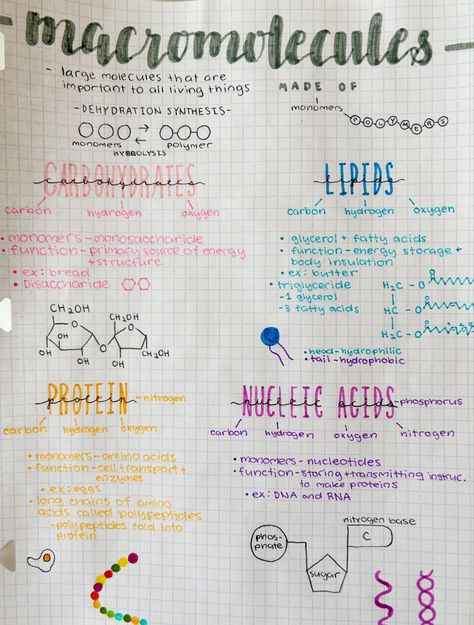 macromolecules
- large molecules that are
important to all living things
MADE OF
monomers
POLYMERS
-DEHYDRATION SYNTHESIS-
monomers polymer
HYDROLYSIS
CARBOHYDRATES
carbohydrates
carbon hydrogen oxygen
• monomers-monosaccharide
• function-primary source of energy
+ structure
• ex: bread
• Disaccharide
CH₂OH
CH₂OH
O
O
O
OH
OH
OH
OH
CH₂OH
LIPIDS
lipids
carbon hydrogen oxygen
• glycerol + fatty acids
• function-energy storage +
body insulation
• ex: butter
• triglyceride
-1 glycerol
-3 fatty acids
H₂C - O
HC - O
H₂C - O
• head-hydrophilic
• tail-hydrophobic
PROTEIN
protein
-nitrogen
carbon hydrogen oxygen
• monomers-amino acids
• function-cell transport +
enzymes
• ex: eggs
• long chains of amino
acids called polypeptides
-polypeptides fold into
protein
NUCLEIC ACIDS
nucleic acids
-phosphorus
carbon hydrogen oxygen nitrogen
• monomers-nucleotides
• function-storing+transmitting instruc.
to make proteins
• ex: DNA and RNA
nitrogen base
phos-
phate
C
sugar